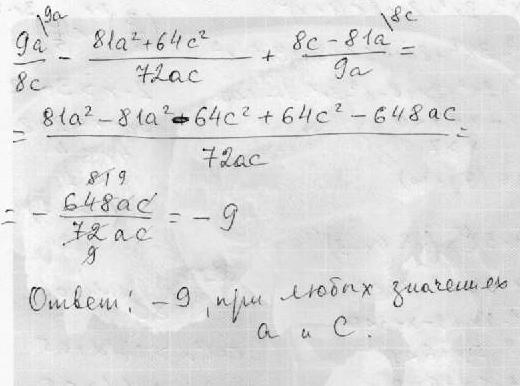 9a\9a/8c - 81a²+64c²/72ac + 8c-81a\8c/9a =
= 81a²-81a²-64c²+64c²-648ac/72ac =
= - 648ac/72ac = -9
Ответ: -9, при любых значениях
a и c.